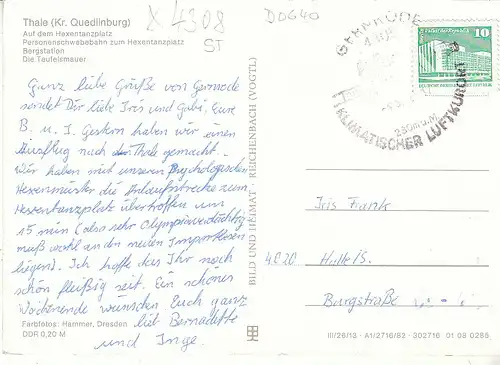 Thale (Kr. Quedlinburg)
Auf dem Hexentanzplatz
Personenschwebebahn zum Hexentanzplatz
Bergstation
Die Teufelsmauer
X 4308
ST
D0640
Ganz liebe Grüße von Gernrode
sendet Dir liebe Iris und Gabi, Eure
B. u. I. Gestern haben wir einen
Ausflug nach Thale gemacht.
Wir haben mit unseren Psychologischen
Hexenmeister die Anlaufstrecke zum
Hexentanzplatz übertroffen um
15 min (also sehr Olympiaverdächtig
muß wohl an den neuen
liegen). Ich hoffe das Ihr noch
schön fleißig seit. Ein schönes
Wochenende wünschen Euch ganz
lieb Bernadette
und Inge.
Farbfotos: Hammer, Dresden
DDR 0,20 M
BILD UND HEIMAT · REICHENBACH (VOGTL)
GERNRODE
KLIMATISCHER LUFTKURORT
250m ü.M.
10
Iris Frank
4020 Halle/S.
Burgstraße
III/26/13 · A1/2716/82 · 302716 01 08 0288